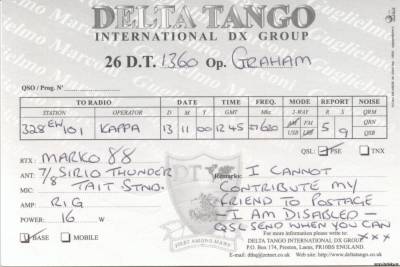 DELTA TANGO
INTERNATIONAL DX GROUP
26 D.T. 1360 Op. GRAHAM
QSO / Prog. Nº
TO RADIO DATE TIME FREQ. MODE REPORT NOISE
STATION OPERATOR D M Y GMT Mhz 2-WAY R S QRM
328 EW 101 KAPPA 13 11 00 12 45 27620 AM FM USB LSB 5 9 QRN QRM
QSL: PSE TNX
RTX: MARKO 88
ANT: 7/8 SIRIO THUNDER
MIC: TAIT STND.
AMP: RIG
POWER: 16 W
BASE MOBILE
DT
FIRST AMONG MANY
Remarks: I CANNOT
CONTRIBUTE MY
FRIEND TO POSTAGE
- I AM DISABLED -
QSL SEND WHEN YOU CAN
xxx
For more information please write to:
DELTA TANGO INTERNATIONAL DX GROUP
P.O. Box 174, Preston, Lancs, PR10BS ENGLAND.
Web: www.deltatango.co.uk